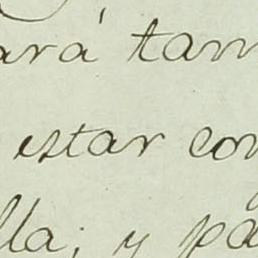 ará tam
estar con
lla; y pa